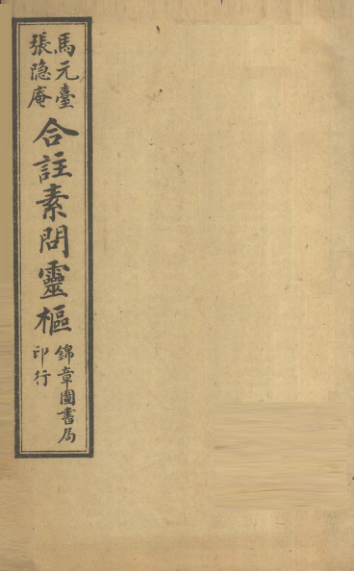 馬元臺
張隐庵
合註素問靈樞
錦章圖書局
印行